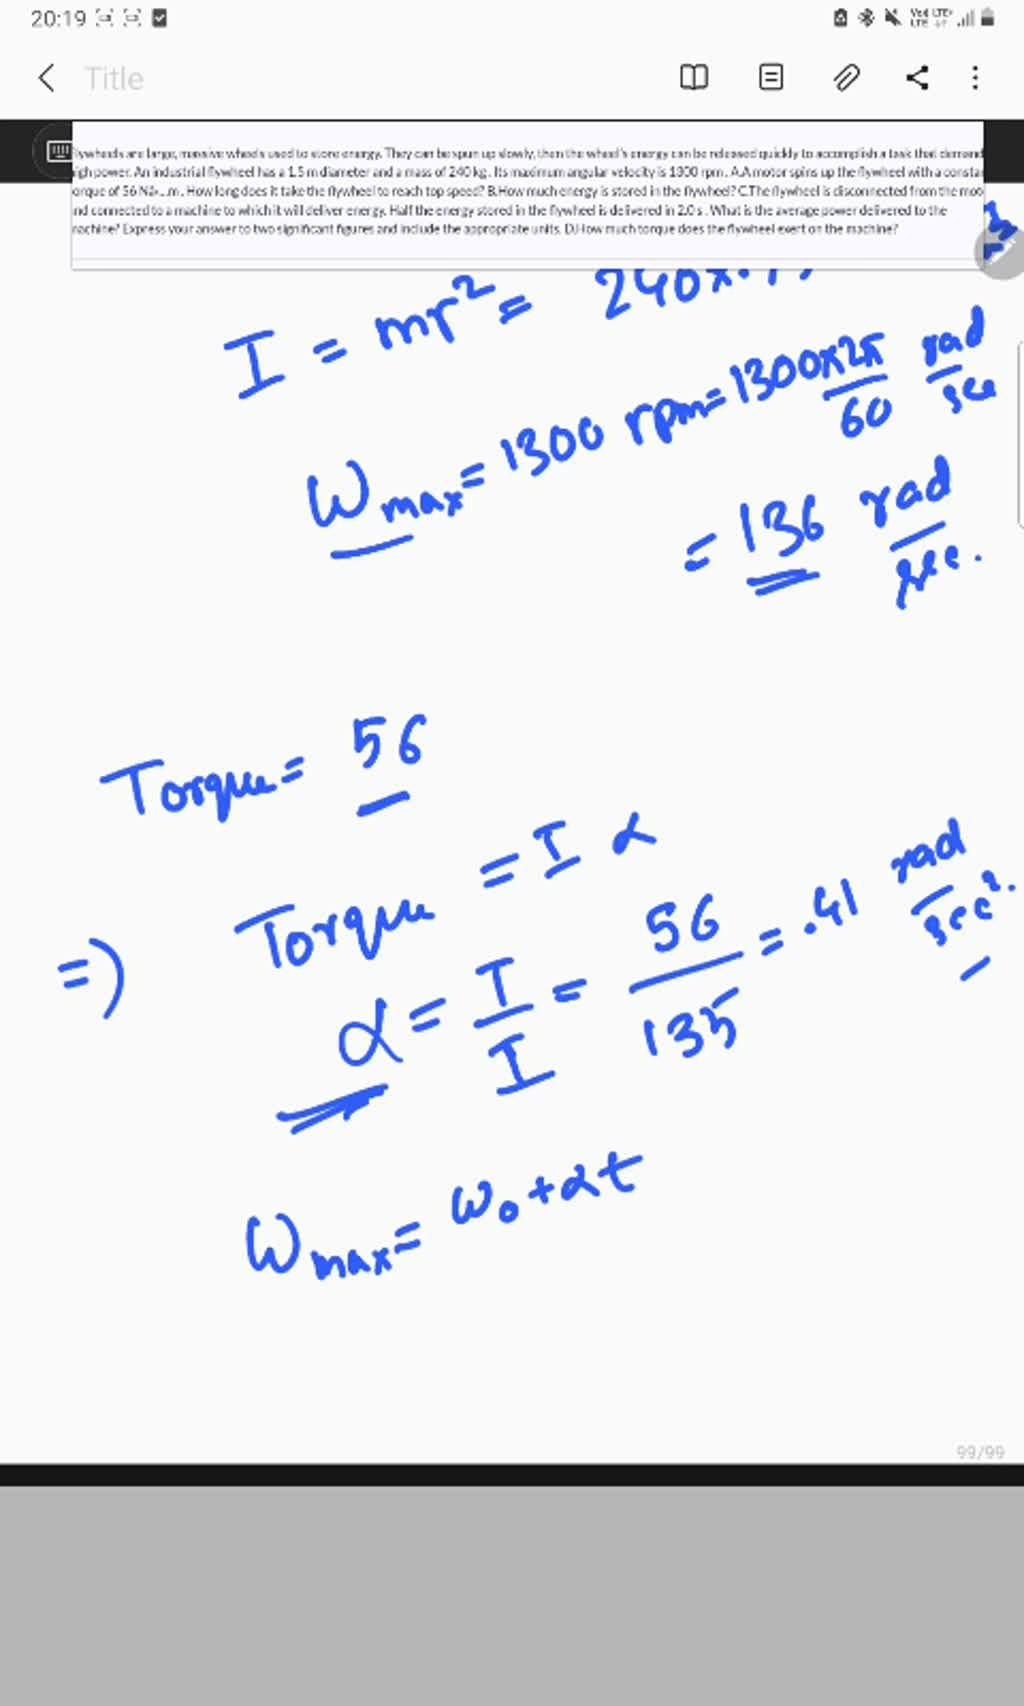 20:19
Title
lywheels are large, massive wheels used to store energy. They can be spun up slowly, then the wheel's energy can be released quickly to accomplish a task that demand
igh power. An industrial flywheel has a 1.5 m diameter and a mass of 240 kg. Its maximum angular velocity is 1300 rpm. A.A motor spins up the flywheel with a constan
orque of 56 Nâ‹…m. How long does it take the flywheel to reach top speed? B.How much energy is stored in the flywheel? C.The flywheel is disconnected from the mot
nd connected to a machine to which it will deliver energy. Half the energy stored in the flywheel is delivered in 2.0 s. What is the average power delivered to the
machine? Express your answer to two significant figures and include the appropriate units. D.How much torque does the flywheel exert on the machine?
I = mr² = 240x.75
Wmax = 1300 rpm = 1300x2π/60 rad/sec
= 136 rad/sec.
Torque = 56
Torque = I α
=) α = T/I = 56/135 = .41 rad/sec².
Wmax = W₀+αt
99/99